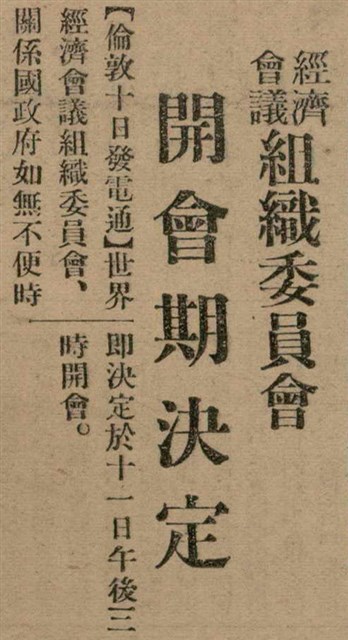 經濟
會議
組織委員會
開會期決定
【倫敦十日發電通】世界
經濟會議組織委員會、
關係國政府如無不便時
即決定於十一日午後三
時開會。